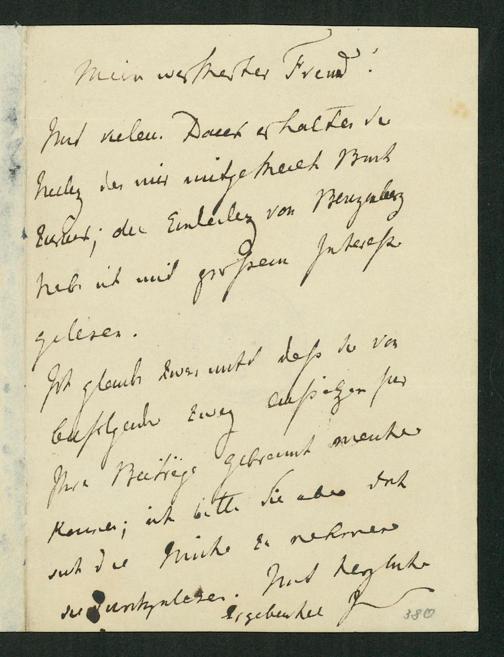 Mein werthester Freund!
Mit vielen Dank erhalten Sie
hiebey das mir mitgetheilte Buch
zurück; die Einleitung von Benzenberg
habe ich mit großem Interesse
gelesen.
Ich glaube zwar nicht daß Sie von
beyfolgende zwey Aufsätzen für
Ihre Beiträge Gebrauch machen
können; ich bitte Sie aber doch
sich die Mühe zu nehmen
sie durchzulesen. Mit herzlicher
Ergebenheit
380